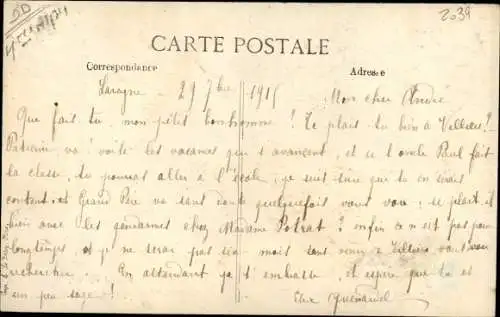 2039
CARTE POSTALE
Correspondance
Adresse
Laragne - 29 7bre 1915 Mon cher André
Que fais tu, mon petit bonhomme ? Te plais tu bien à Villiers ?
Patience va ! voilà les vacances qui s'avancent, et si l'oncle Paul fait
la classe, tu pourras aller à l'école, je suis sûre que tu en serais
content. et Grand Père va sans doute quelquefois vous voir, se plait il
bien avec les gendarmes chez Madame Potrat ? enfin ce n'est pas pour
longtemps, et je ne serai pas six mois sans venir à Villiers vous
rechercher. En attendant je t'embrasse, et espère que tu es
un peu sage !